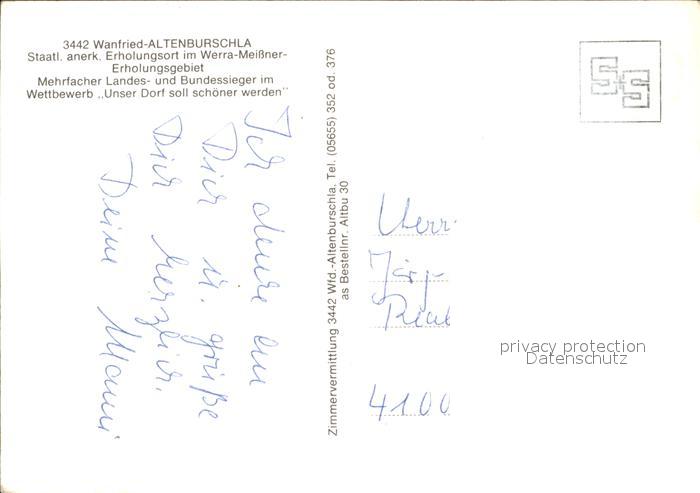 3442 Wanfried-ALTENBURSCHLA
Staatl. anerk. Erholungsort im Werra-Meißner-
Erholungsgebiet
Mehrfacher Landes- und Bundessieger im
Wettbewerb „Unser Dorf soll schöner werden"
Ich denke an
Dich u. grüße
Dich herzlich.
Deine Mama
Zimmervermittlung 3442 Wfd.-Altenburschla, Tel. (05655) 352 od. 376
as Bestellnr. Altbu 30
Herr
Jörg
4100
privacy protection
Datenschutz